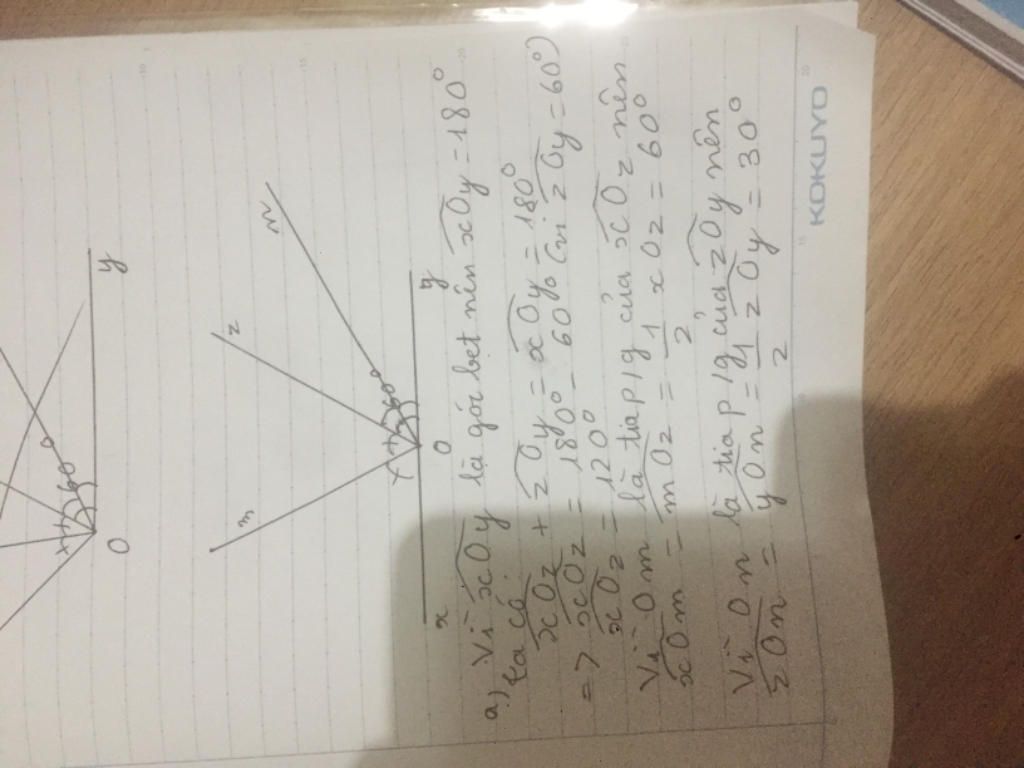 60°
O
y
m
z
n
60°
x
O
y
a) Vì xOy là góc bẹt nên xOy = 180°
ta có
xOz + zOy = xOy = 180°
=> xOz = 180° - 60° (vì zOy = 60°)
xOz = 120°
Vì Om là tia p/g của xOz nên
xOm = mOz = 1/2 xOz = 60°
Vì On là tia p/g của zOy nên
zOn = yOn = 1/2 zOy = 30°
KOKUYO